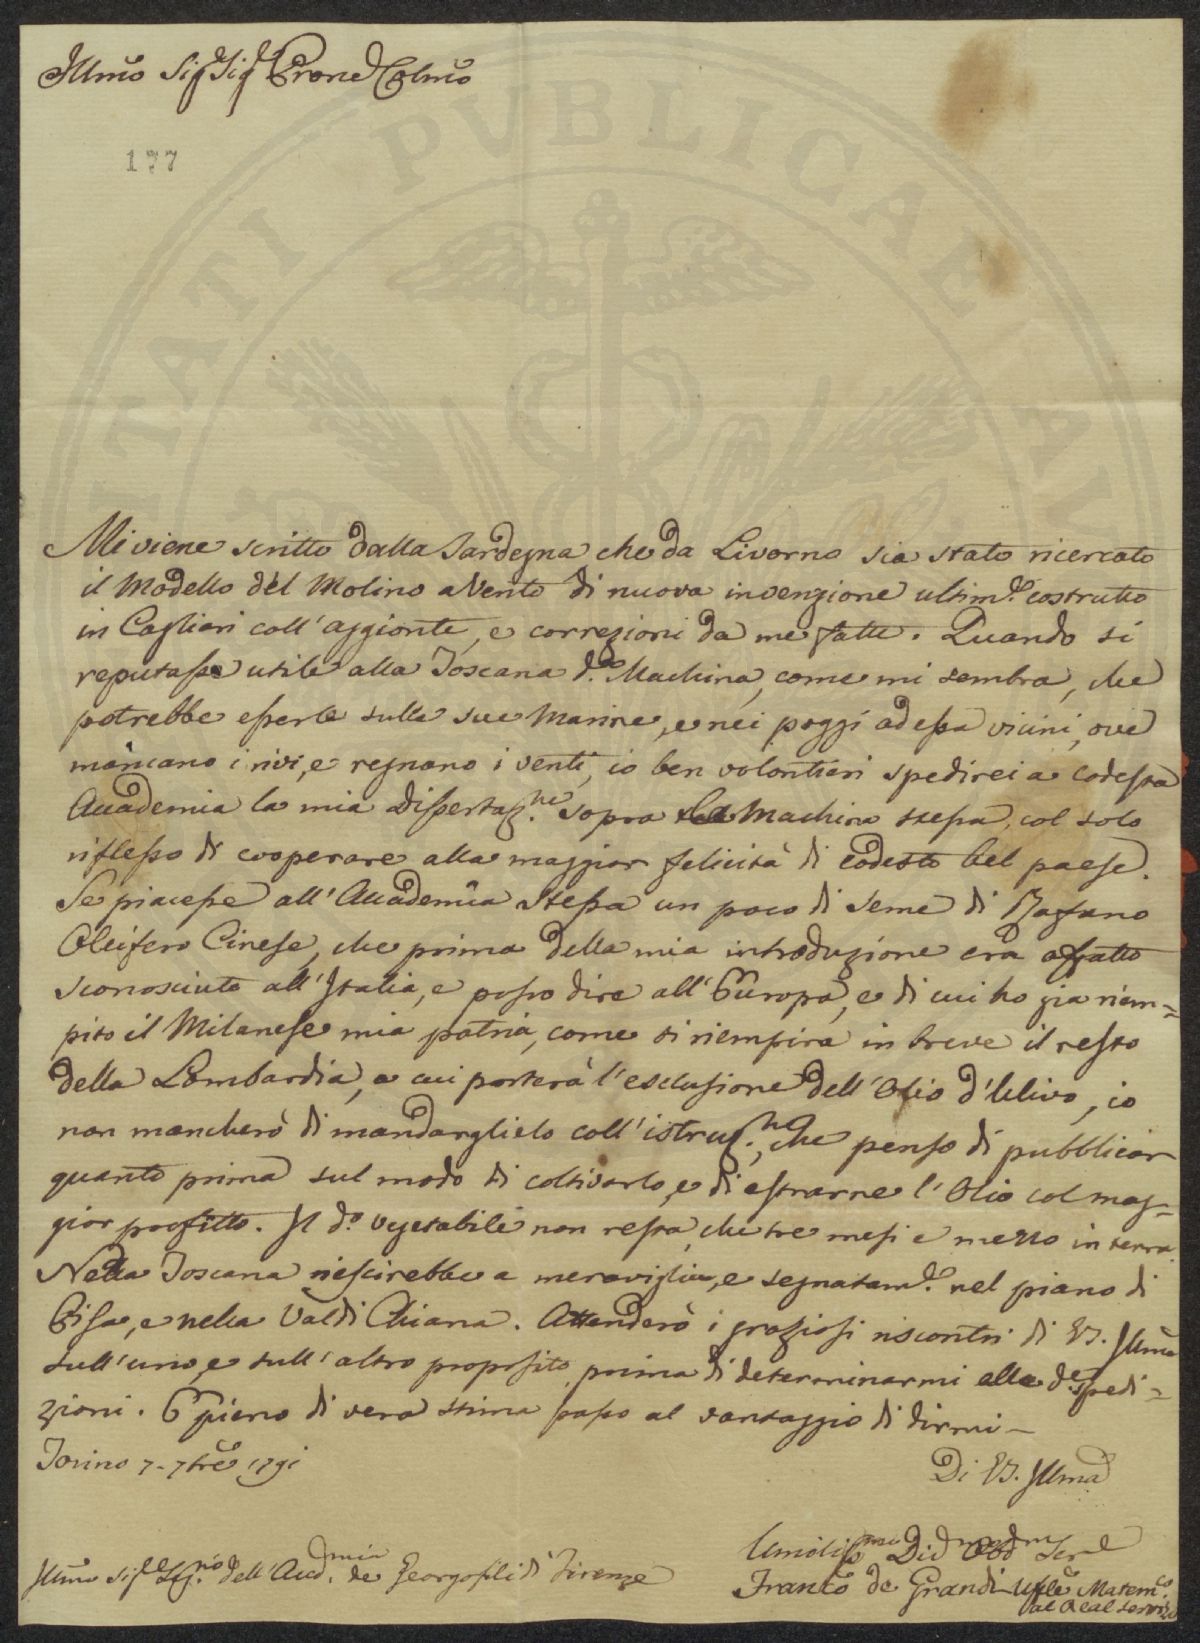 Illmo Sigr Sigr Prone Colmo
177
PVBLICAE
Mi viene scritto dalla Sardegna che da Livorno sia stato ricercato
il Modello del Molino a Vento di nuova invenzione ultimte costrutto
in Cagliari coll'aggionte, e correzioni da me fatte. Quando si
reputasse utile alla Toscana da Machina, come mi sembra, che
potrebbe esserle sulle sue Marine, e nei poggi ad essa vicini, ove
mancano i rivi, e regnano i venti, io ben volontieri spedirei a codesta
Accademia la mia Dissertazne sopra la Machina stessa, col solo
riflesso di cooperare alla maggior felicità di codesto bel paese.
Se piacesse all'Accademia stessa un poco di seme di Rafano
Oleifero Cinese, che prima della mia introduzione era affatto
sconosciuto all'Italia, e posso dire all'Europa, e di cui ho gia riem=
pito il Milanese mia patria, come si riempira in breve il resto
della Lombardia, a cui porterà l'esclusione dell'Olio d'Ulivo, io
non mancherò di mandarglielo coll'istruzne, che penso di pubblicar
quanto prima sul modo di coltivarlo, e di estrarne l'Olio col mag=
gior profitto. Il do vegetabile non resta, che tre mesi e mezzo in terra
Nella Toscana riescirebbe a meraviglia, e segnatamte nel piano di
Pisa, e nella Val di Chiana. Attenderò i graziosi riscontri di VS. Illma
sull'uno, e sull'altro proposito prima di determinarmi alle de spedi=
zioni. E pieno di vera stima passo al vantaggio di dirmi
Torino 7. 7bre 1791
Di VS. Illma
Umolissmo Div Obb Ser
Illmo Sigr Segrio dell'Accdmia de Georgofili di Firenze
Franco de Grandi Uffle Matemco
al Real servizo